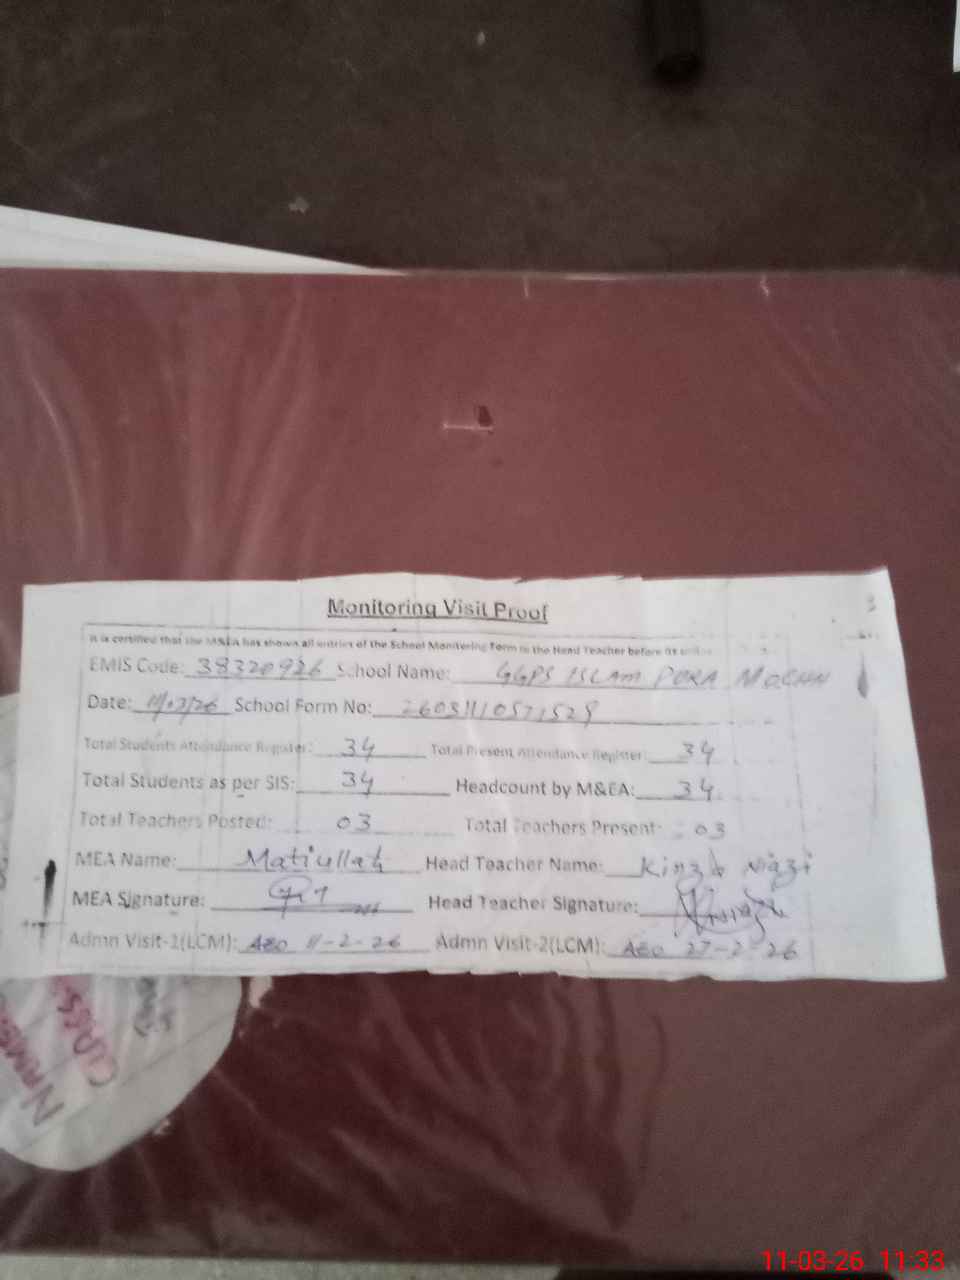 Monitoring Visit Proof
It is certified that the M&EA has shown all entries of the School Monitoring Form to the Head Teacher before its
EMIS Code: 38320926 School Name: GGPS ISLAM PURA MOCHH
Date: 11/03/26 School Form No:
Total Students Attendance Register: 34 Total Present Attendance Register: 34
Total Students as per SIS: 34 Headcount by M&EA: 34
Total Teachers Posted: 03 Total Teachers Present: 03
MEA Name: Matiullah Head Teacher Name: Kinza Niazi
MEA Signature: Head Teacher Signature:
Admn Visit-1(LCM): AEO 11-2-26 Admn Visit-2(LCM): AEO 27-2-26
NAME
CLASS
11-03-26 11:33